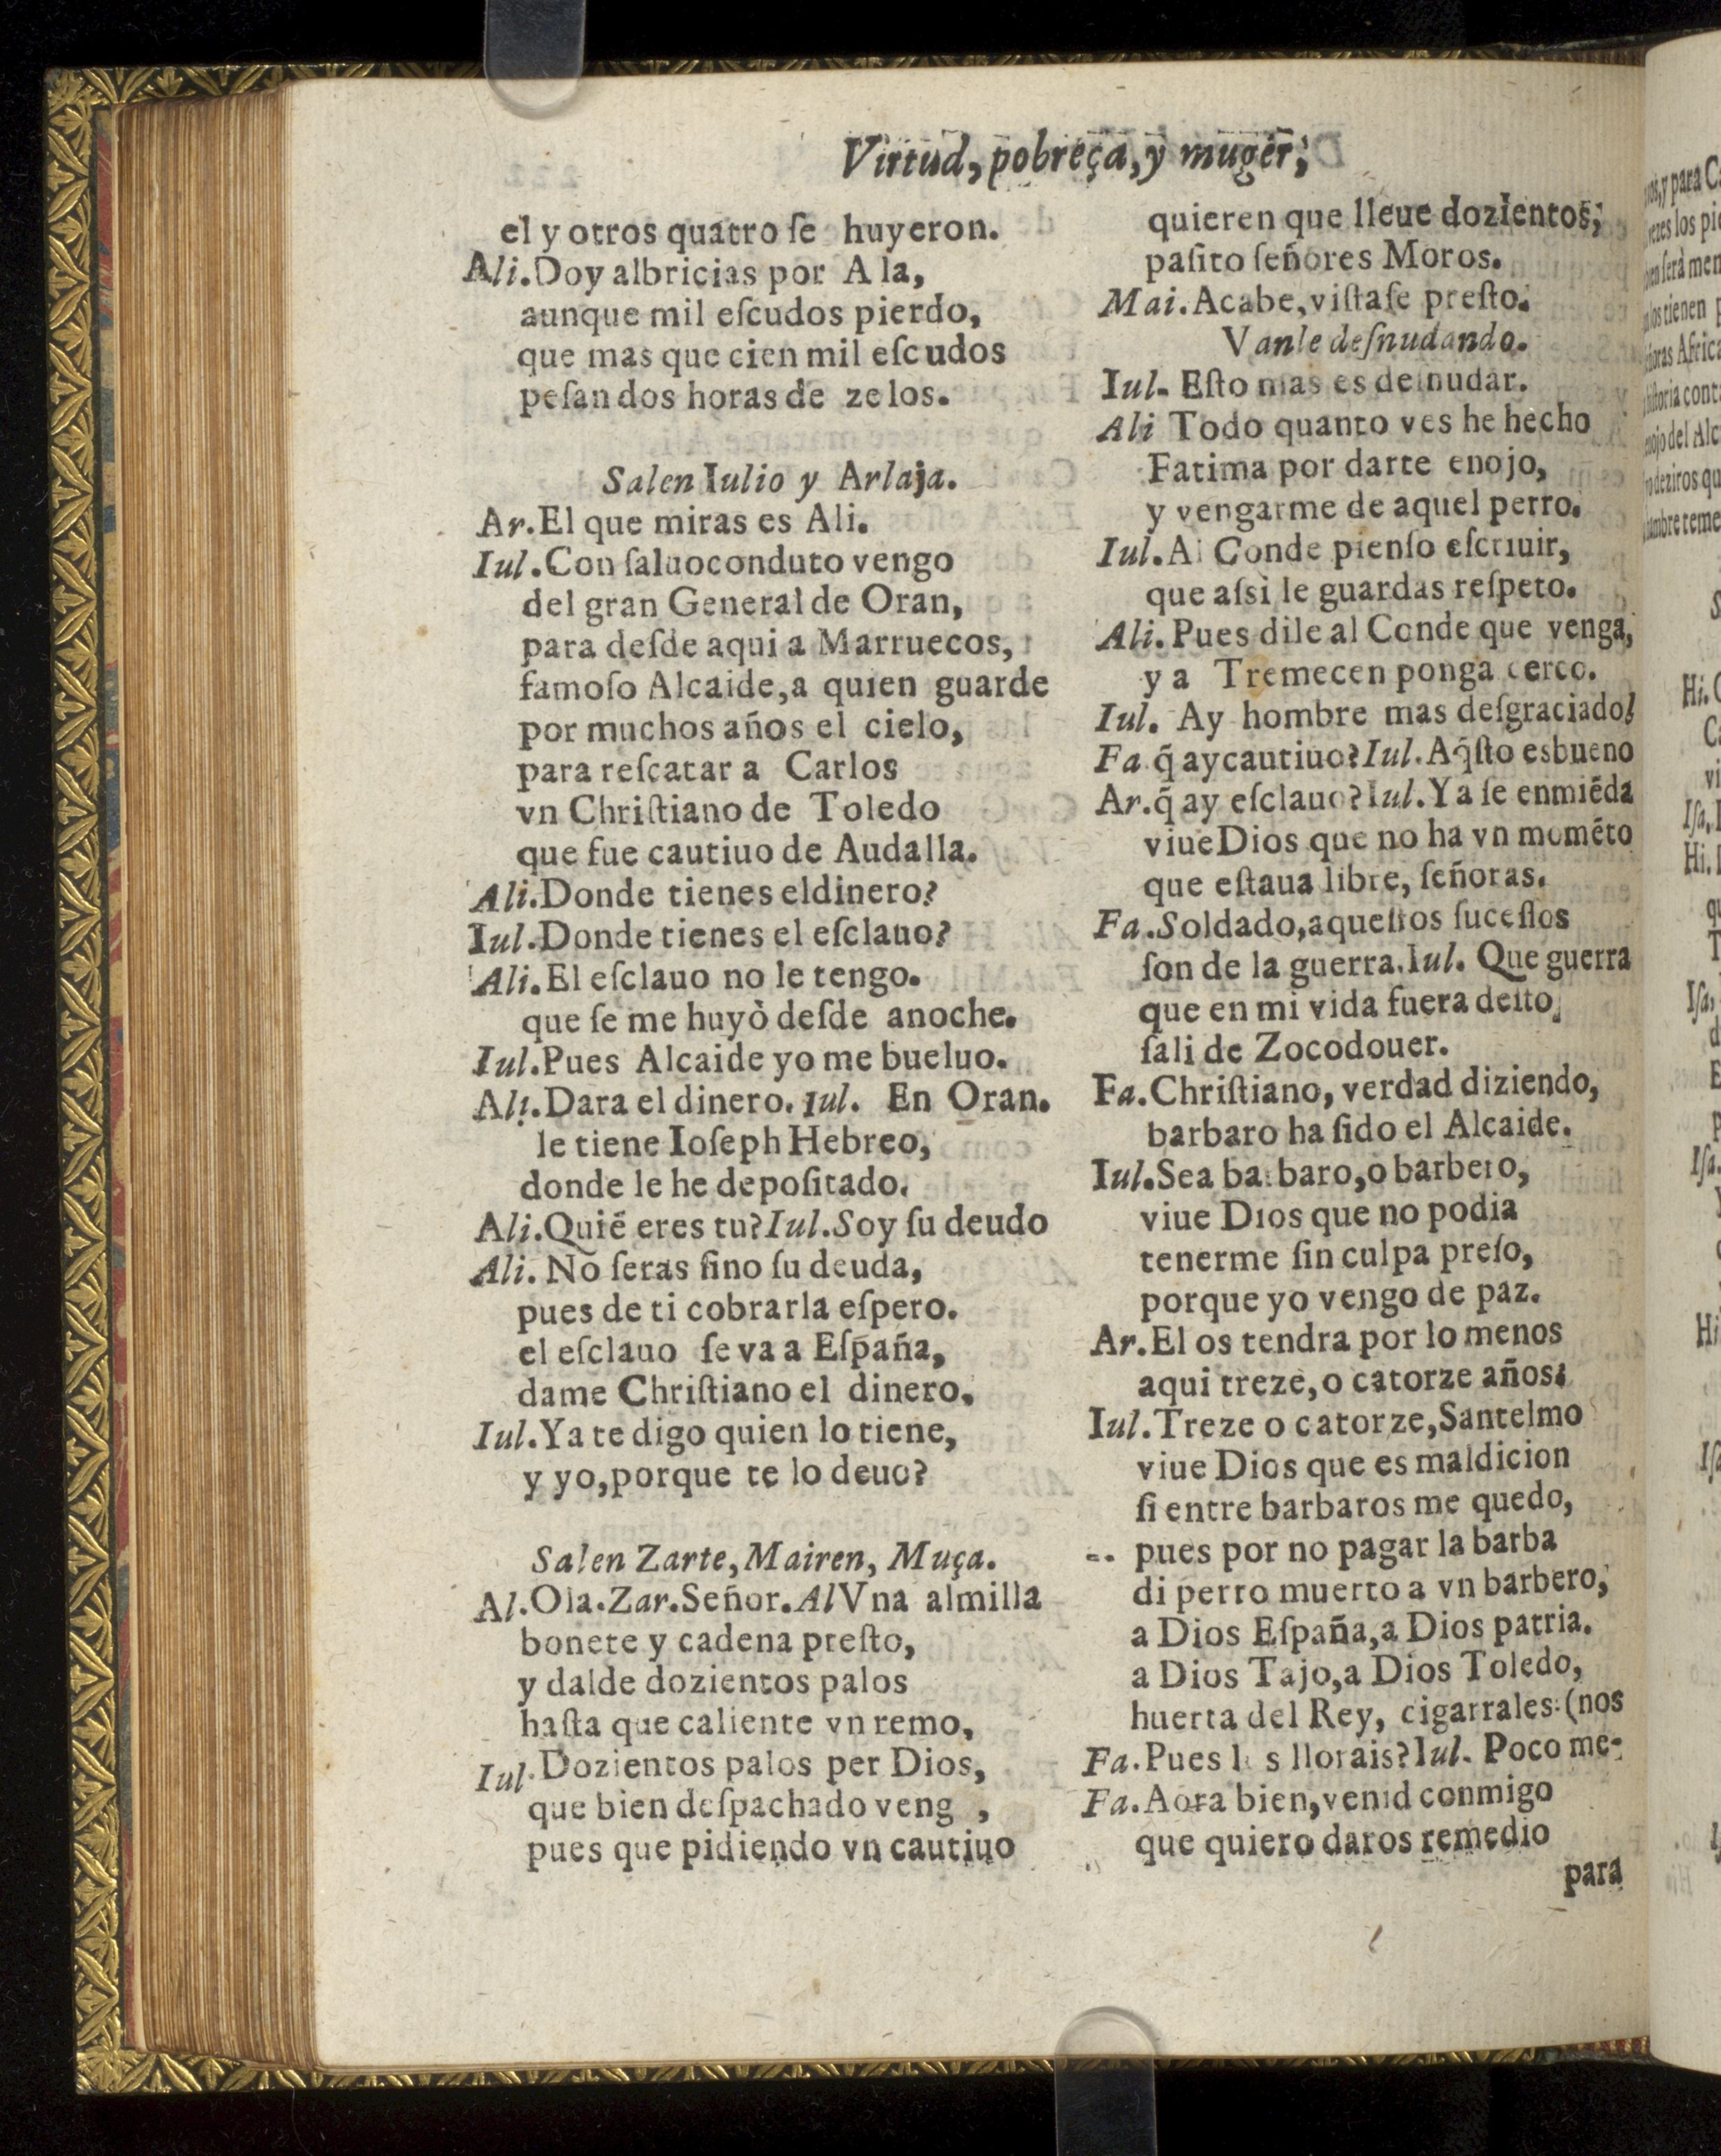 Virtud, pobreça, y muger,
el y otros quatro ſe huyeron.
Ali. Doy albricias por Ala,
aunque mil eſcudos pierdo,
que mas que cien mil eſcudos
peſan dos horas de zelos.
Salen Iulio y Arlaja.
Ar. El que miras es Ali.
Iul. Con ſaluoconduto vengo
del gran General de Oran,
para deſde aqui a Marruecos,
famoſo Alcaide, a quien guarde
por muchos años el cielo,
para reſcatar a Carlos
vn Chriſtiano de Toledo
que fue cautiuo de Audalla.
Ali. Donde tienes el dinero?
Iul. Donde tienes el eſclauo?
Ali. El eſclauo no le tengo.
que ſe me huyò deſde anoche.
Iul. Pues Alcaide yo me bueluo.
Ali. Dara el dinero. Iul. En Oran.
le tiene Ioſeph Hebreo,
donde le he depoſitado.
Ali. Quiē eres tu? Iul. Soy ſu deudo
Ali. No ſeras ſino ſu deuda,
pues de ti cobrarla eſpero.
el eſclauo ſe va a Eſpaña,
dame Chriſtiano el dinero.
Iul. Ya te digo quien lo tiene,
y yo, porque te lo deuo?
Salen Zarte, Mairen, Muça.
Al. Ola. Zar. Señor. Al Vna almilla
bonete y cadena preſto,
y dalde dozientos palos
haſta que caliente vn remo,
Iul. Dozientos palos per Dios,
que bien deſpachado veng ,
pues que pidiendo vn cautiuo
quieren que lleue dozientos,
paſito ſeñores Moros.
Mai. Acabe, viſtaſe preſto.
Vanle deſnudando.
Iul. Eſto mas es deſnudar.
Ali Todo quanto ves he hecho
Fatima por darte enojo,
y vengarme de aquel perro.
Iul. Al Conde pienſo eſcriuir,
que aſsi le guardas reſpeto.
Ali. Pues dile al Conde que venga,
y a Tremecen ponga cerco.
Iul. Ay hombre mas deſgraciado!
Fa. q̃ ay cautiuo? Iul. Aq̃ſto es bueno
Ar. q̃ ay eſclauo? Iul. Ya ſe enmiēda
viue Dios que no ha vn momēto
que eſtaua libre, ſeñoras.
Fa. Soldado, aqueſtos ſuceſſos
ſon de la guerra. Iul. Que guerra
que en mi vida fuera deſto
ſali de Zocodouer.
Fa. Chriſtiano, verdad diziendo,
barbaro ha ſido el Alcaide.
Iul. Sea barbaro, o barbero,
viue Dios que no podia
tenerme ſin culpa preſo,
porque yo vengo de paz.
Ar. El os tendra por lo menos
aqui treze, o catorze años.
Iul. Treze o catorze, Santelmo
viue Dios que es maldicion
ſi entre barbaros me quedo,
pues por no pagar la barba
di perro muerto a vn barbero,
a Dios Eſpaña, a Dios patria.
a Dios Tajo, a Dios Toledo,
huerta del Rey, cigarrales. (nos
Fa. Pues l s llorais? Iul. Poco me-
Fa. Aora bien, venid conmigo
que quiero daros remedio
para